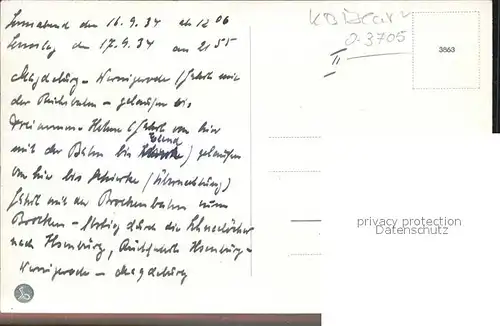 Sonnabend den 16.9.34 ab 12 06
Sonntag den 17.9.34 an 21 55
Magdeburg – Wernigerode (Fahrt mit
der Reichsbahn – gelaufen bis
Dreiannen-Hohne (Fahrt von hier
mit der Bahn bis Elend) gelaufen
von hier bis Schierke (Übernachtung)
Fahrt mit der Brockenbahn zum
Brocken – Abstieg durch die Schneelöcher
nach Ilsenburg, Rückfahrt Ilsenburg –
Wernigerode – Magdeburg
II
3863
privacy protection
Datenschutz